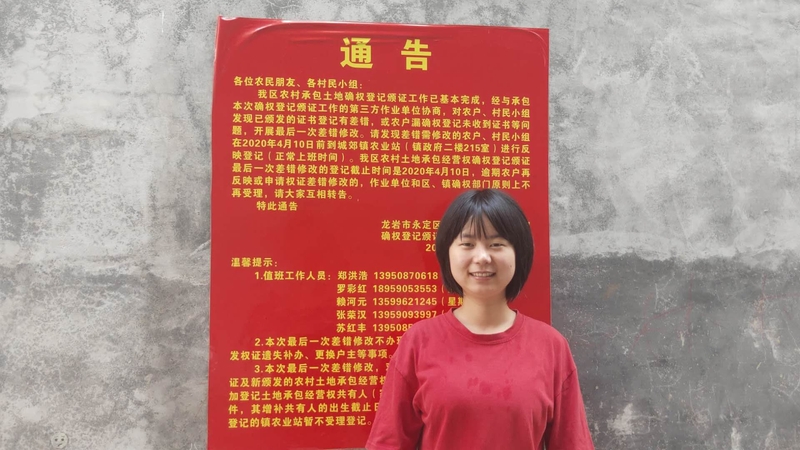 通告
各位农民朋友、各村民小组：
我区农村承包土地确权登记颁证工作已基本完成，经与承包
本次确权登记颁证工作的第三方作业单位协商，对农户、村民小组
发现已颁发的证书登记有差错，或农户漏确权登记未收到证书等问
题，开展最后一次差错修改。请发现差错需修改的农户、村民小组
在2020年4月10日前到城郊镇农业站（镇政府二楼215室）进行反
映登记（正常上班时间）。我区农村土地承包经营权确权登记颁证
最后一次差错修改的登记截止时间是2020年4月10日，逾期农户再
反映或申请权证差错修改的，作业单位和区、镇确权部门原则上不
再受理，请大家互相转告。
特此通告
龙岩市永定区
确权登记颁证
20
温馨提示：
1.值班工作人员：郑洪浩 13950870618
罗彩红 18959053553（
赖河元 13599621245（星期
张荣汉 13959093997（
苏红丰 1395085
2.本次最后一次差错修改不办理
发权证遗失补办、更换户主等事项。
3.本次最后一次差错修改，
证及新颁发的农村土地承包经营权
加登记土地承包经营权共有人（
件，其增补共有人的出生截止日
登记的镇农业站暂不受理登记。